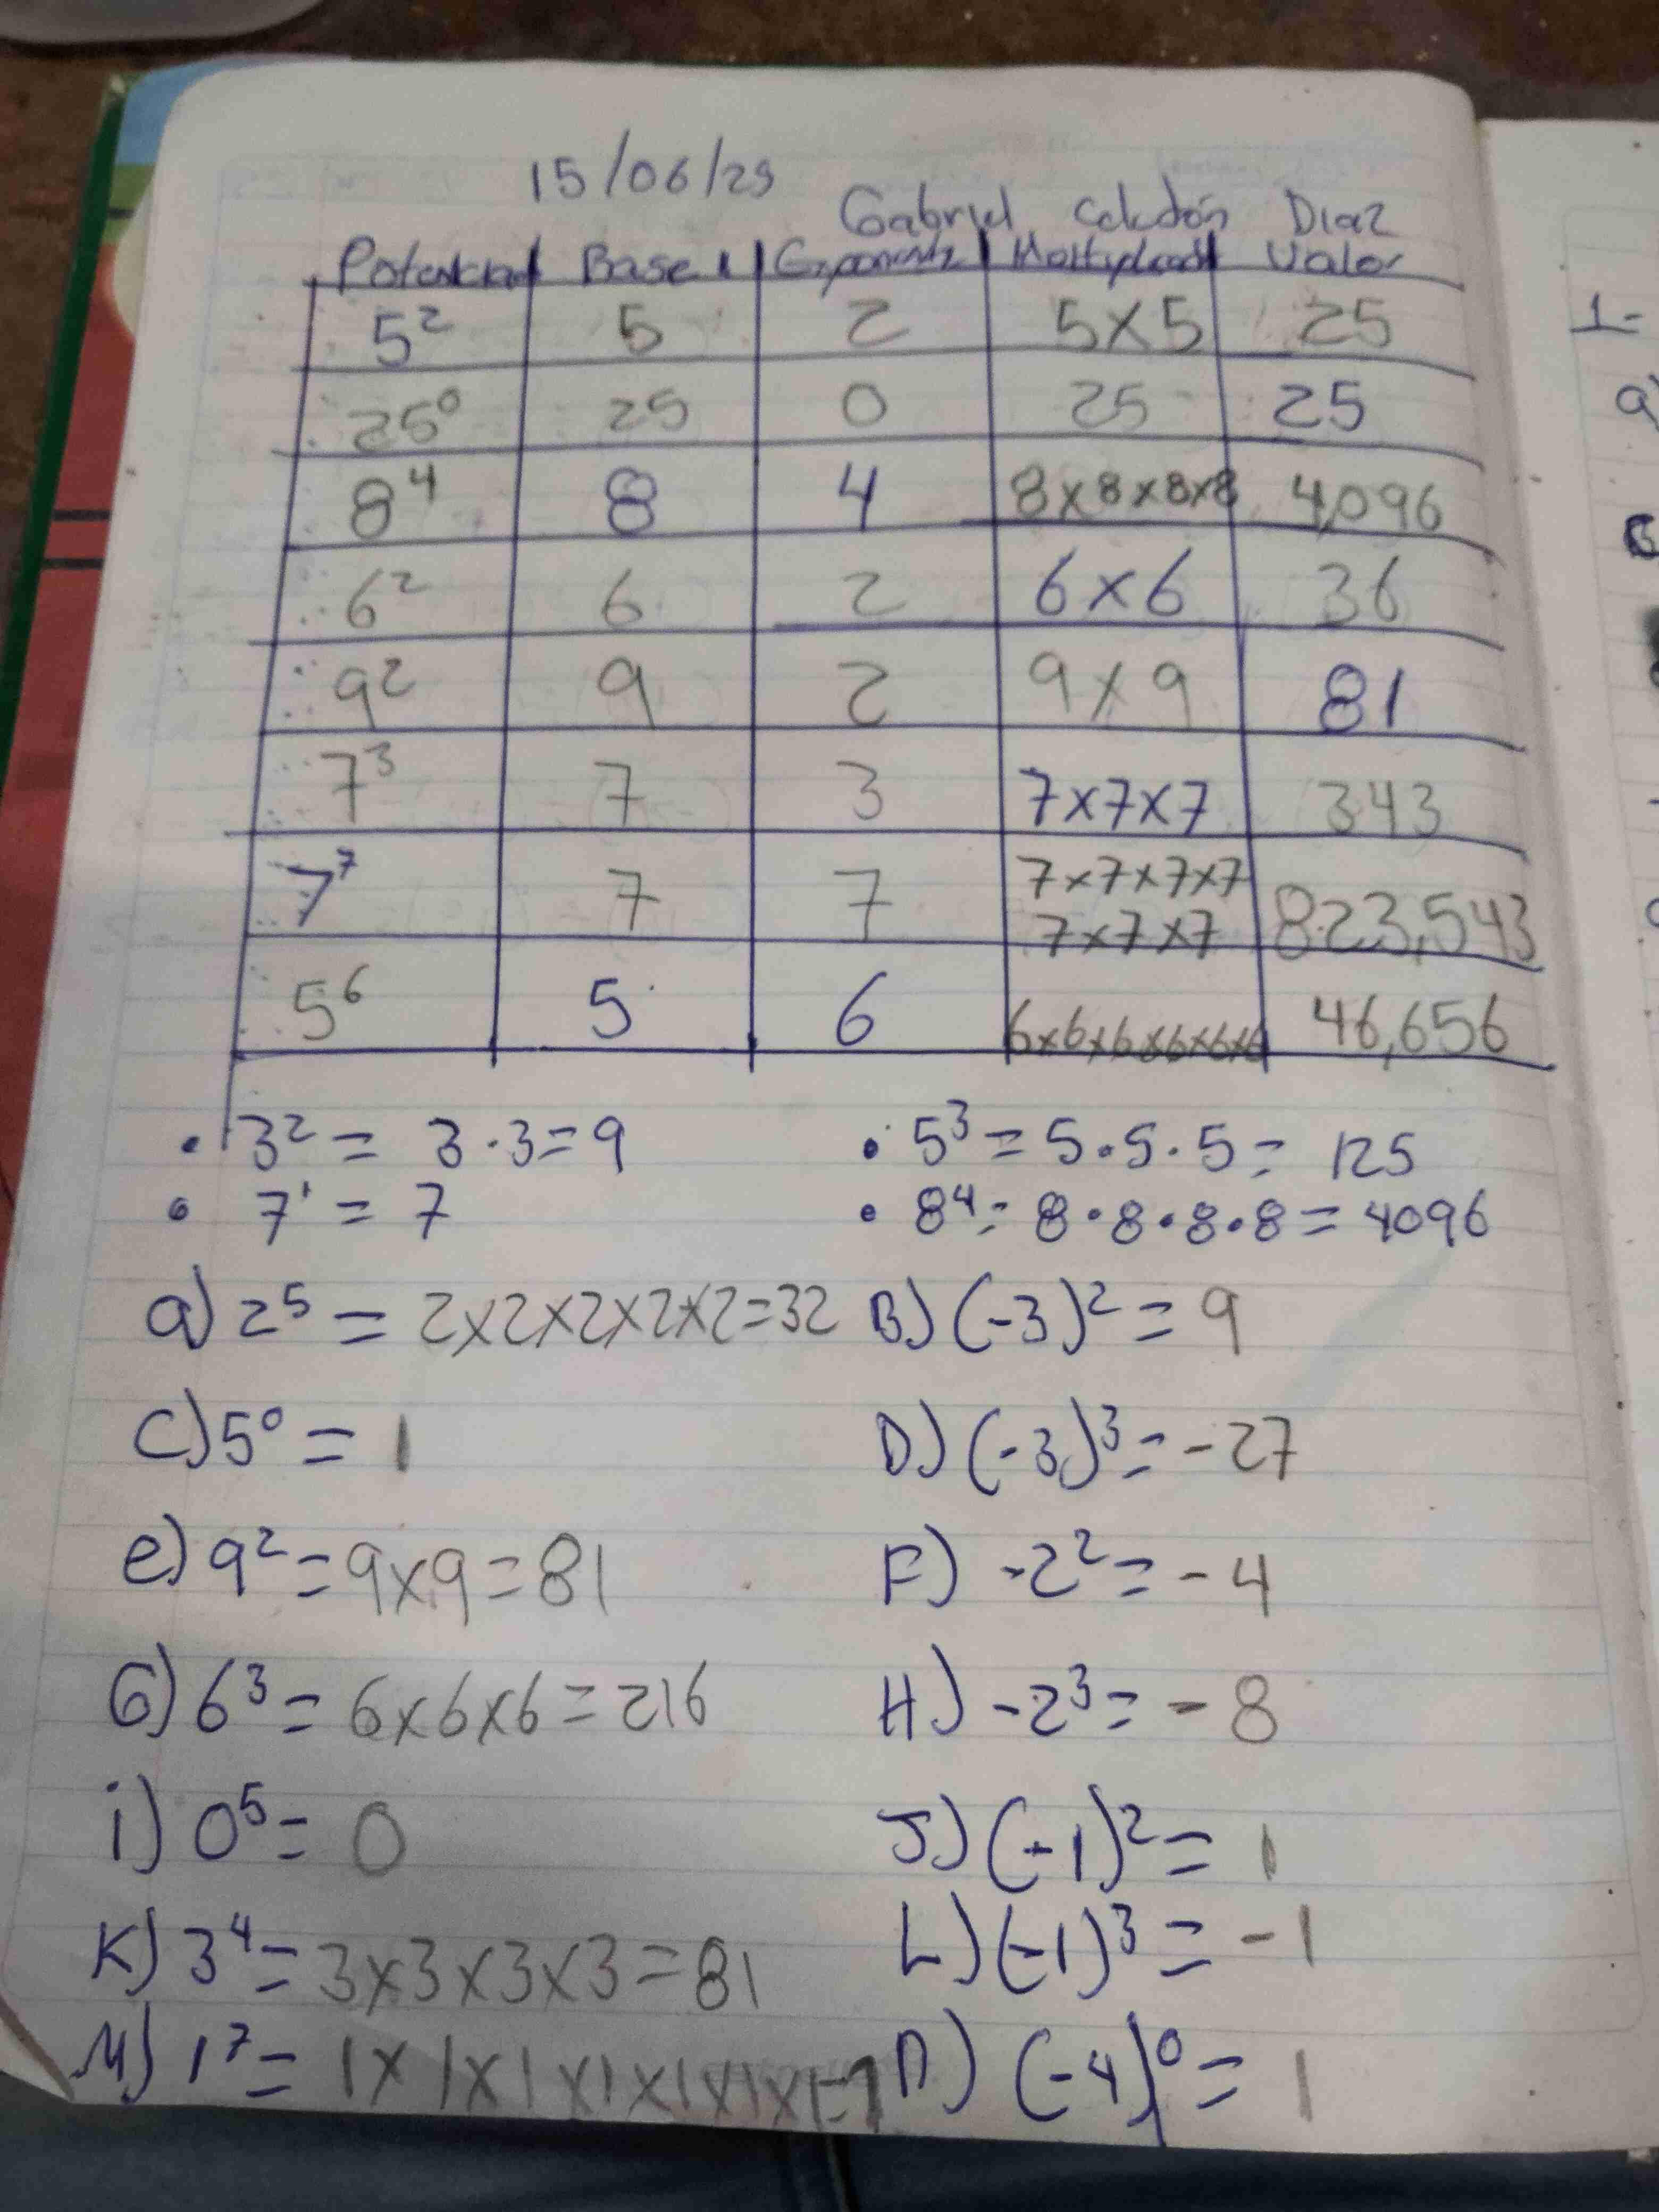 15/06/25
Gabriel Celedón Diaz
Potencia Base Exponente Multiplicación Valor
5² 5 2 5×5 25
25⁰ 25 0 25 25
8⁴ 8 4 8×8×8×8 4,096
6² 6 2 6×6 36
9² 9 2 9×9 81
7³ 7 3 7×7×7 343
7⁷ 7 7 7×7×7×7 823,543
7×7×7
5⁶ 5 6 6×6×6×6×6×6 46,656
• 3² = 3·3=9 • 5³ = 5·5·5= 125
• 7¹ = 7 • 8⁴= 8·8·8·8 = 4096
a) 2⁵ = 2×2×2×2×2=32 B) (-3)² = 9
C) 5⁰ = 1 D) (-3)³ = -27
e) 9² = 9×9=81 F) -2² = -4
G) 6³ = 6×6×6=216 H) -2³ = -8
i) 0⁵ = 0 J) (-1)² = 1
K) 3⁴ = 3×3×3×3=81 L) (-1)³ = -1
M) 1⁷ = 1×1×1×1×1×1×1=1 n) (-4)⁰ = 1
1-
a)